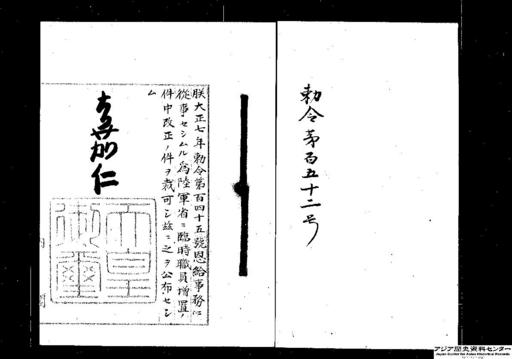 勅令第百五十二号
朕大正七年勅令第百四十五號恩給事務ニ
從事セシムル為陸軍省ニ臨時職員増置ノ
件中改正ノ件ヲ裁可シ茲ニ之ヲ公布セシ
ム
嘉仁
天皇
御璽
アジア歴史資料センター
Japan Center for Asian Historical Records